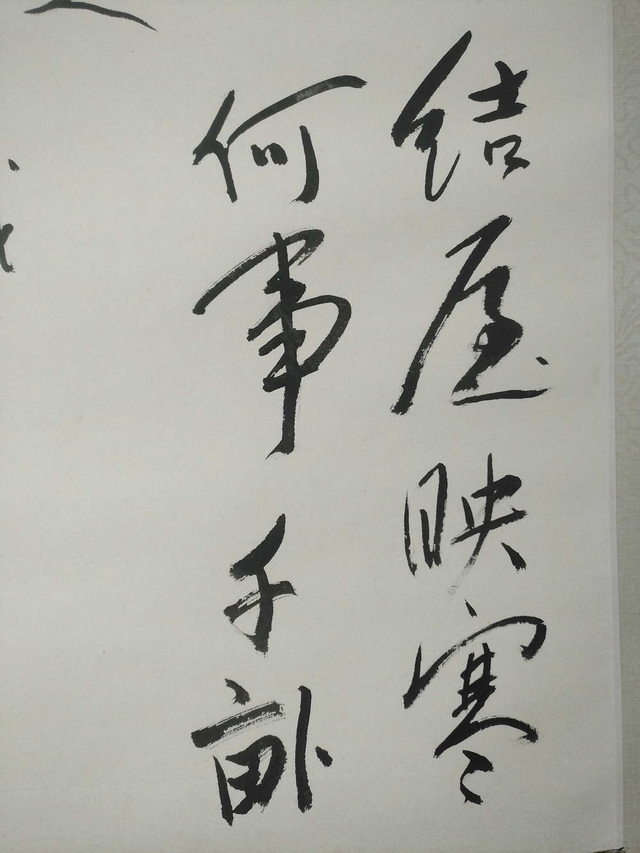 结屋映寒
何事千亩